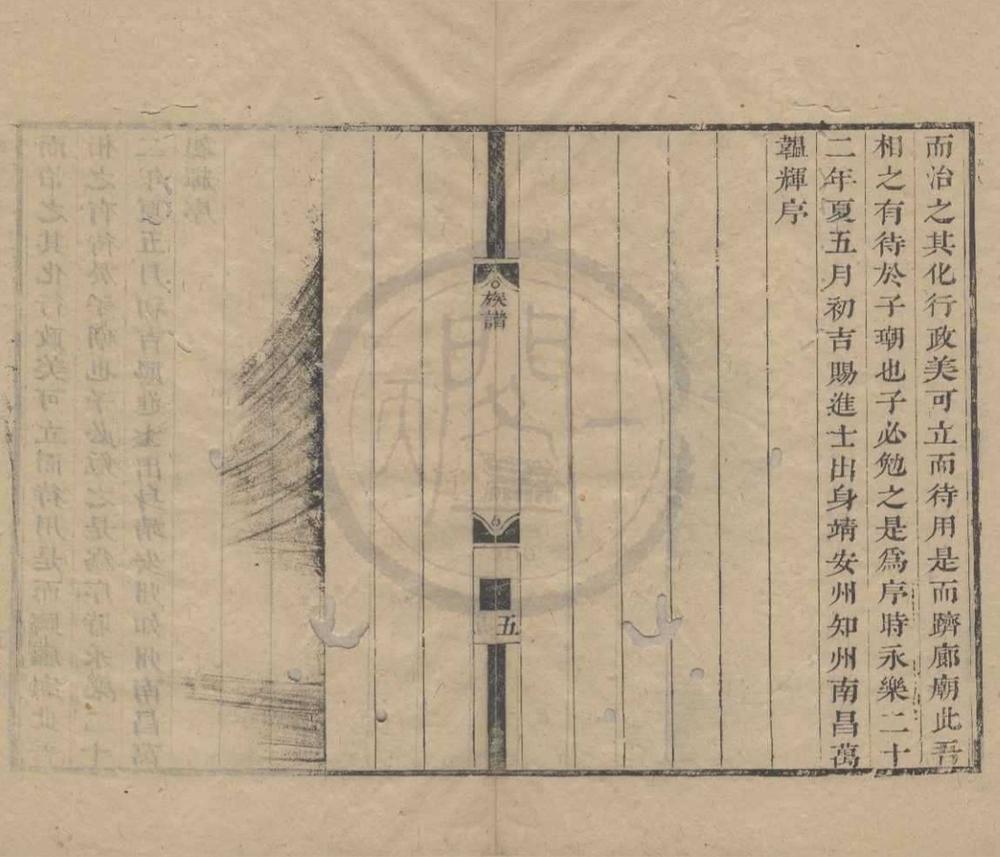 而治之其化行政美可立而待用是而躋廊廟此吾
相之有待於子瑚也子必勉之是爲序時永樂二十
二年夏五月初吉賜進士出身靖安州知州南昌萬
韞輝序
族譜
五